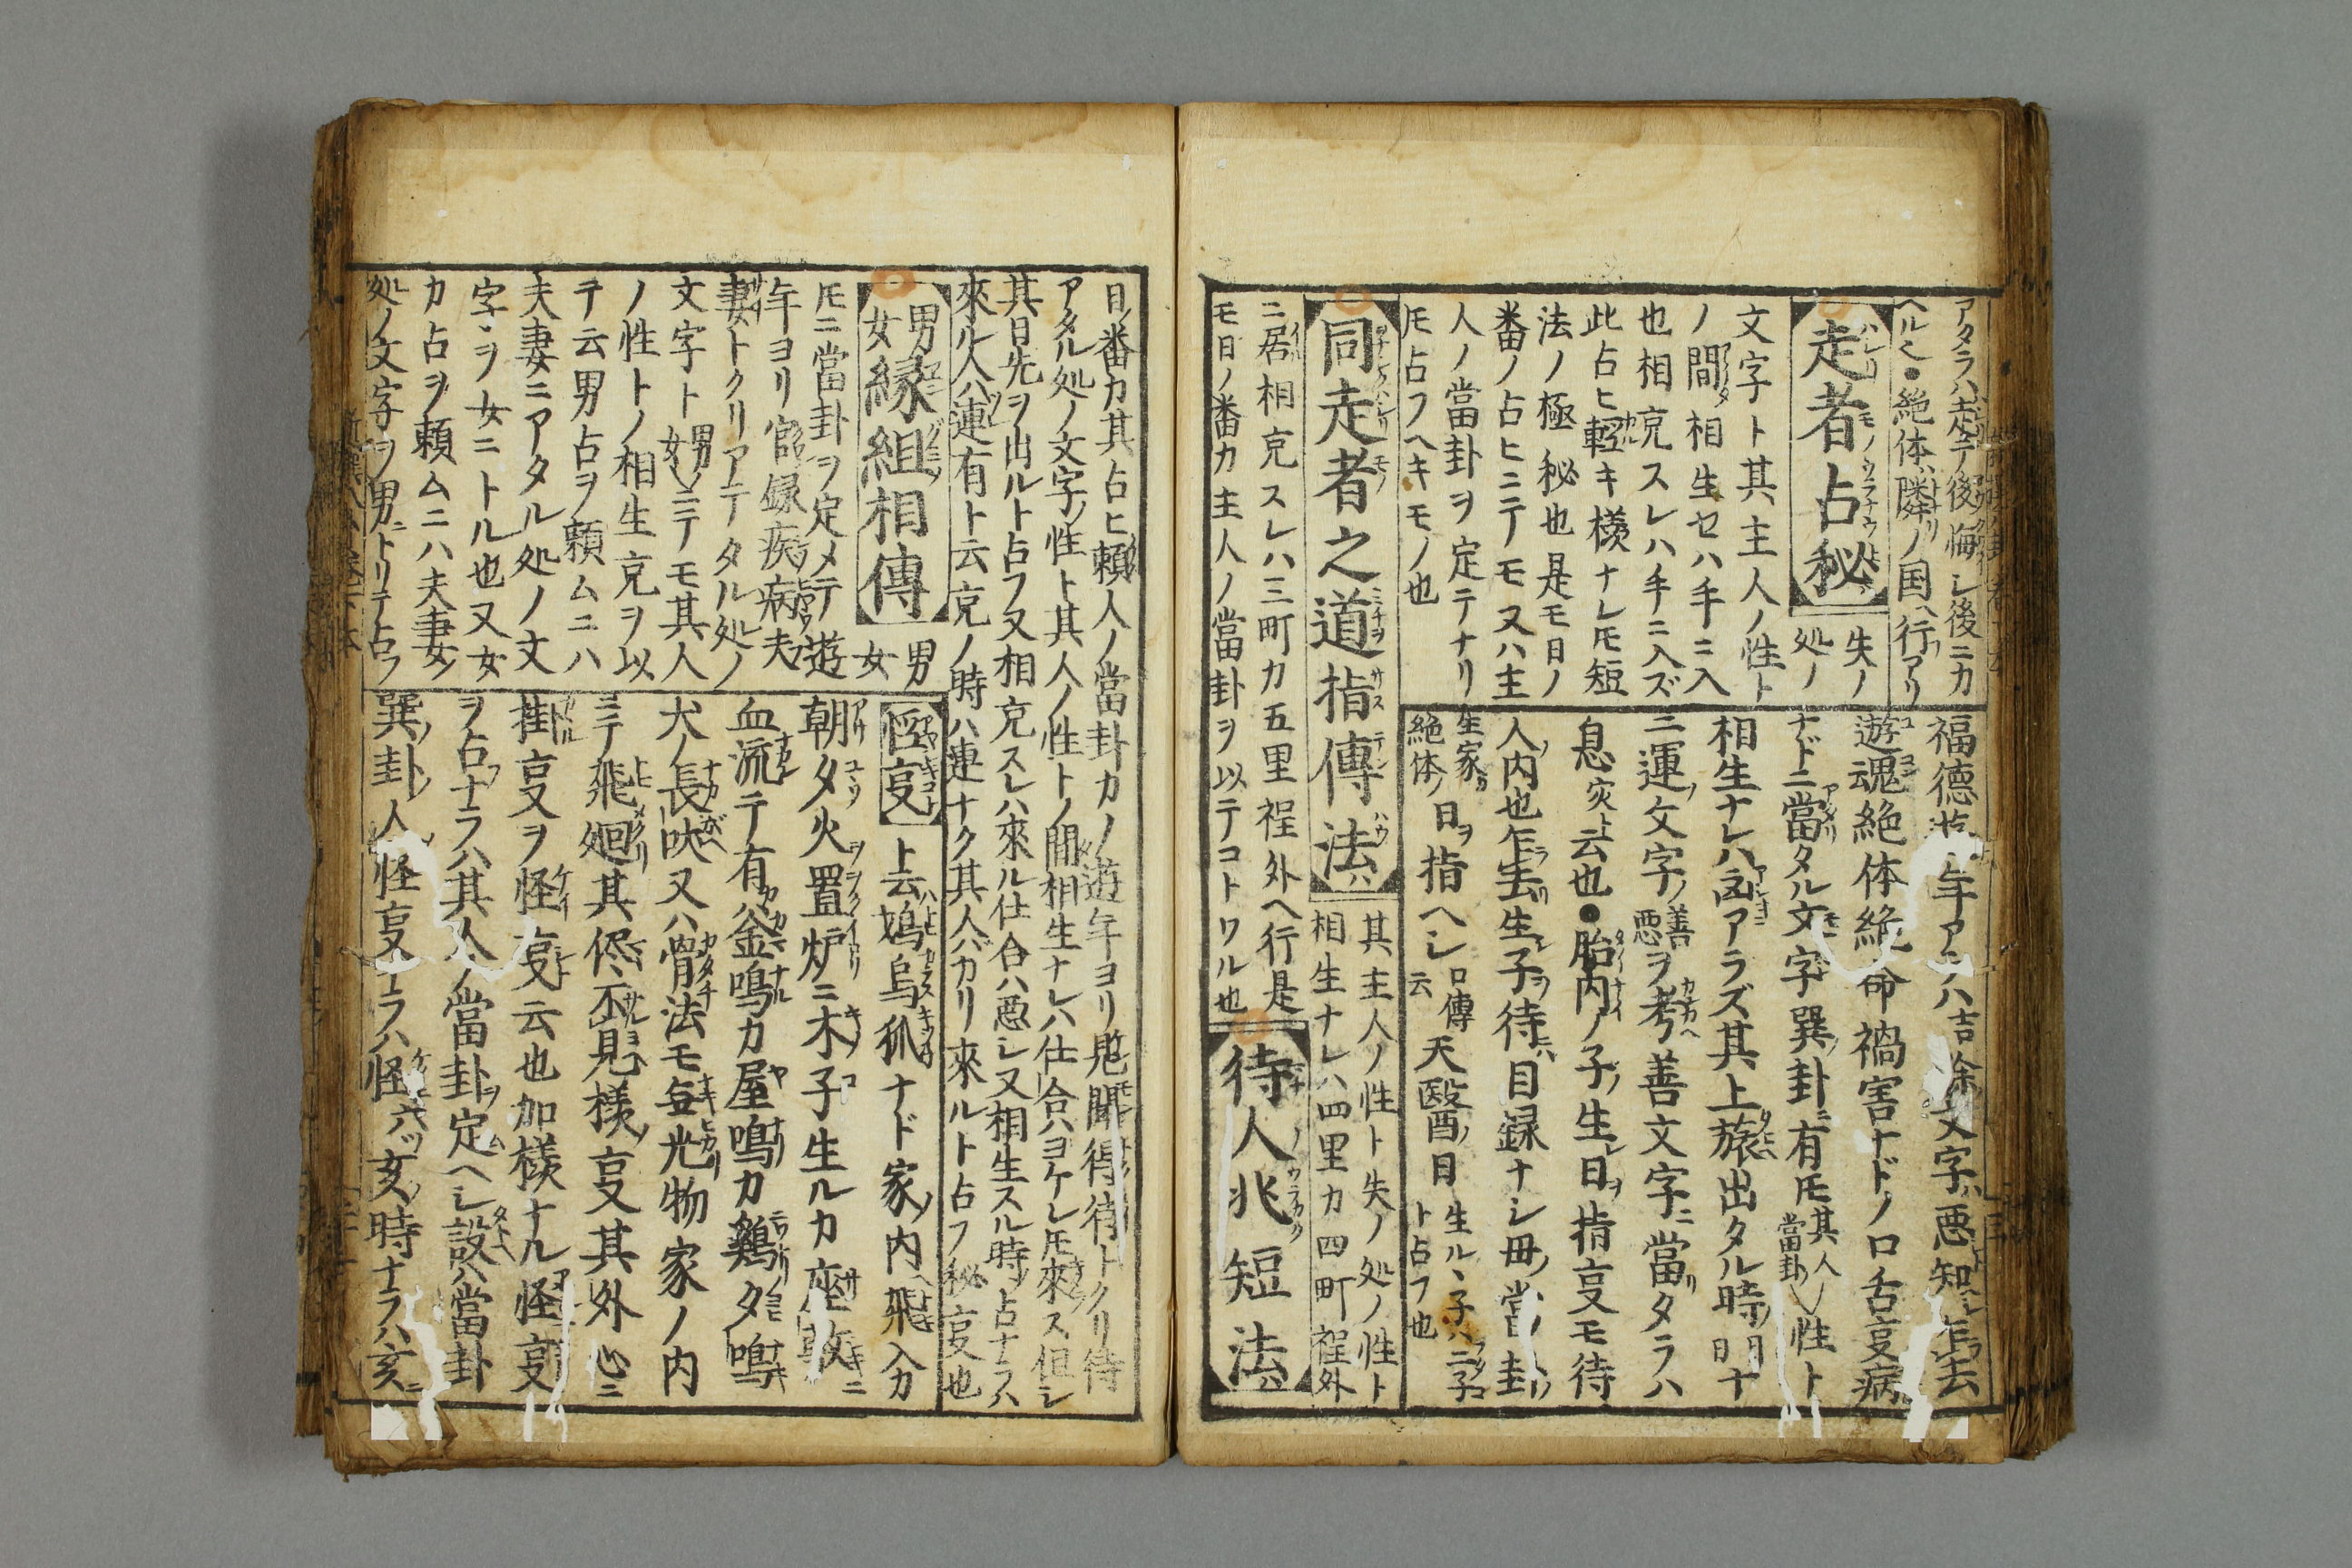 アタラハ走テ後悔シ後ニカ
ヘル〱●絶体ハ隣ノ国ヘ行アリ
走者占秘 失ノ処ノ
文字ト其主人ノ性ト
ノ間タ相生セハ手ニ入
也相克スレハ手ニ入ズ
此占ヒ軽キ様ナレ𪜈短
法ノ極秘也是モ日ノ
番ノ占ヒニテモ又ハ主
人ノ當卦ヲ定テナリ
𪜈占フヘキモノ也
福徳遊年アラハ吉余文字ハ悪知ヘシ乍去
遊魂絶体絶命禍害ナドノ口舌㕝病
ナドニ當タル文字巽卦ニ有𪜈其人ノ當卦ノ性ト
相生ナレハ凶アラズ其上旅出タル時ノ月日ナ
ニ運ノ文字ノ善悪ヲ考善文字ニ當リタラハ
息災ト云也●胎内ノ子ノ生レ日ヲ指㕝モ待
人ノ内也乍去生ルヽ子ヲ待ハ目録ナシ毋ノ當ル卦ノ
生家カ絶体ノ日ヲ指ヘシ口傳云天醫ノ日生ルヽ子ハ二子ト占フ也
同走者之道指傳法ハ 其主人ノ性ト失ノ処ノ性ト相生ナレハ四里カ四町程外
ニ居相克スレハ三町カ五里程外ヘ行是
モ日ノ番カ主人ノ當卦ヲ以テコトワル也
待人兆短法ハ
日ノ番カ其占ヒ頼人ノ當卦カノ遊年ヨリ見聞得待トクリ待
アタル処ノ文字ノ性ト其人ノ性トノ間相生ナレハ仕合ハヨケレ𪜈來ス但シ
其日先ヲ出ルト占フ又相克スレハ來ル仕合ハ悪シ又相生スル時ノ占ナラハ
來ル人ハ運有ト云克ノ時ハ運ナク其人バカリ來ルト占フ秘㕝也
男女縁組相傳 男女
𪜈ニ當卦ヲ定メテ遊
年ヨリ官録疾病夫
妻トクリアテタル処ノ
文字ト男女ニテモ其人
ノ性トノ相生克ヲ以
テ云男占ヲ頼ムニハ
夫妻ニアタル処ノ文
字ヽヲ女ニトル也又女
カ占ヲ頼ムニハ夫妻ノ
処ノ文字ヲ男ニトリテ占フ
怪㕝 ト云ハ鳩烏狐ナド家ノ内ヘ飛入カ
朝夕火置炉ニ木ノ子生ルカ座敷ニ
血流テ有カ釜鳴カ屋鳴カ鷄夕鳴
犬ノ長吠又ハ骨法モ無光物家ノ内
ニテ飛廻其侭不見様ノ㕝其外心ニ
掛㕝ヲ怪㕝云也加様ナル怪㕝
ヲ占ナラハ其人ノ當卦ヲ定ヘシ設ハ當卦
巽ノ卦ノ人怪㕝ナラハ怪六ッ亥ノ時ナラハ亥ニ